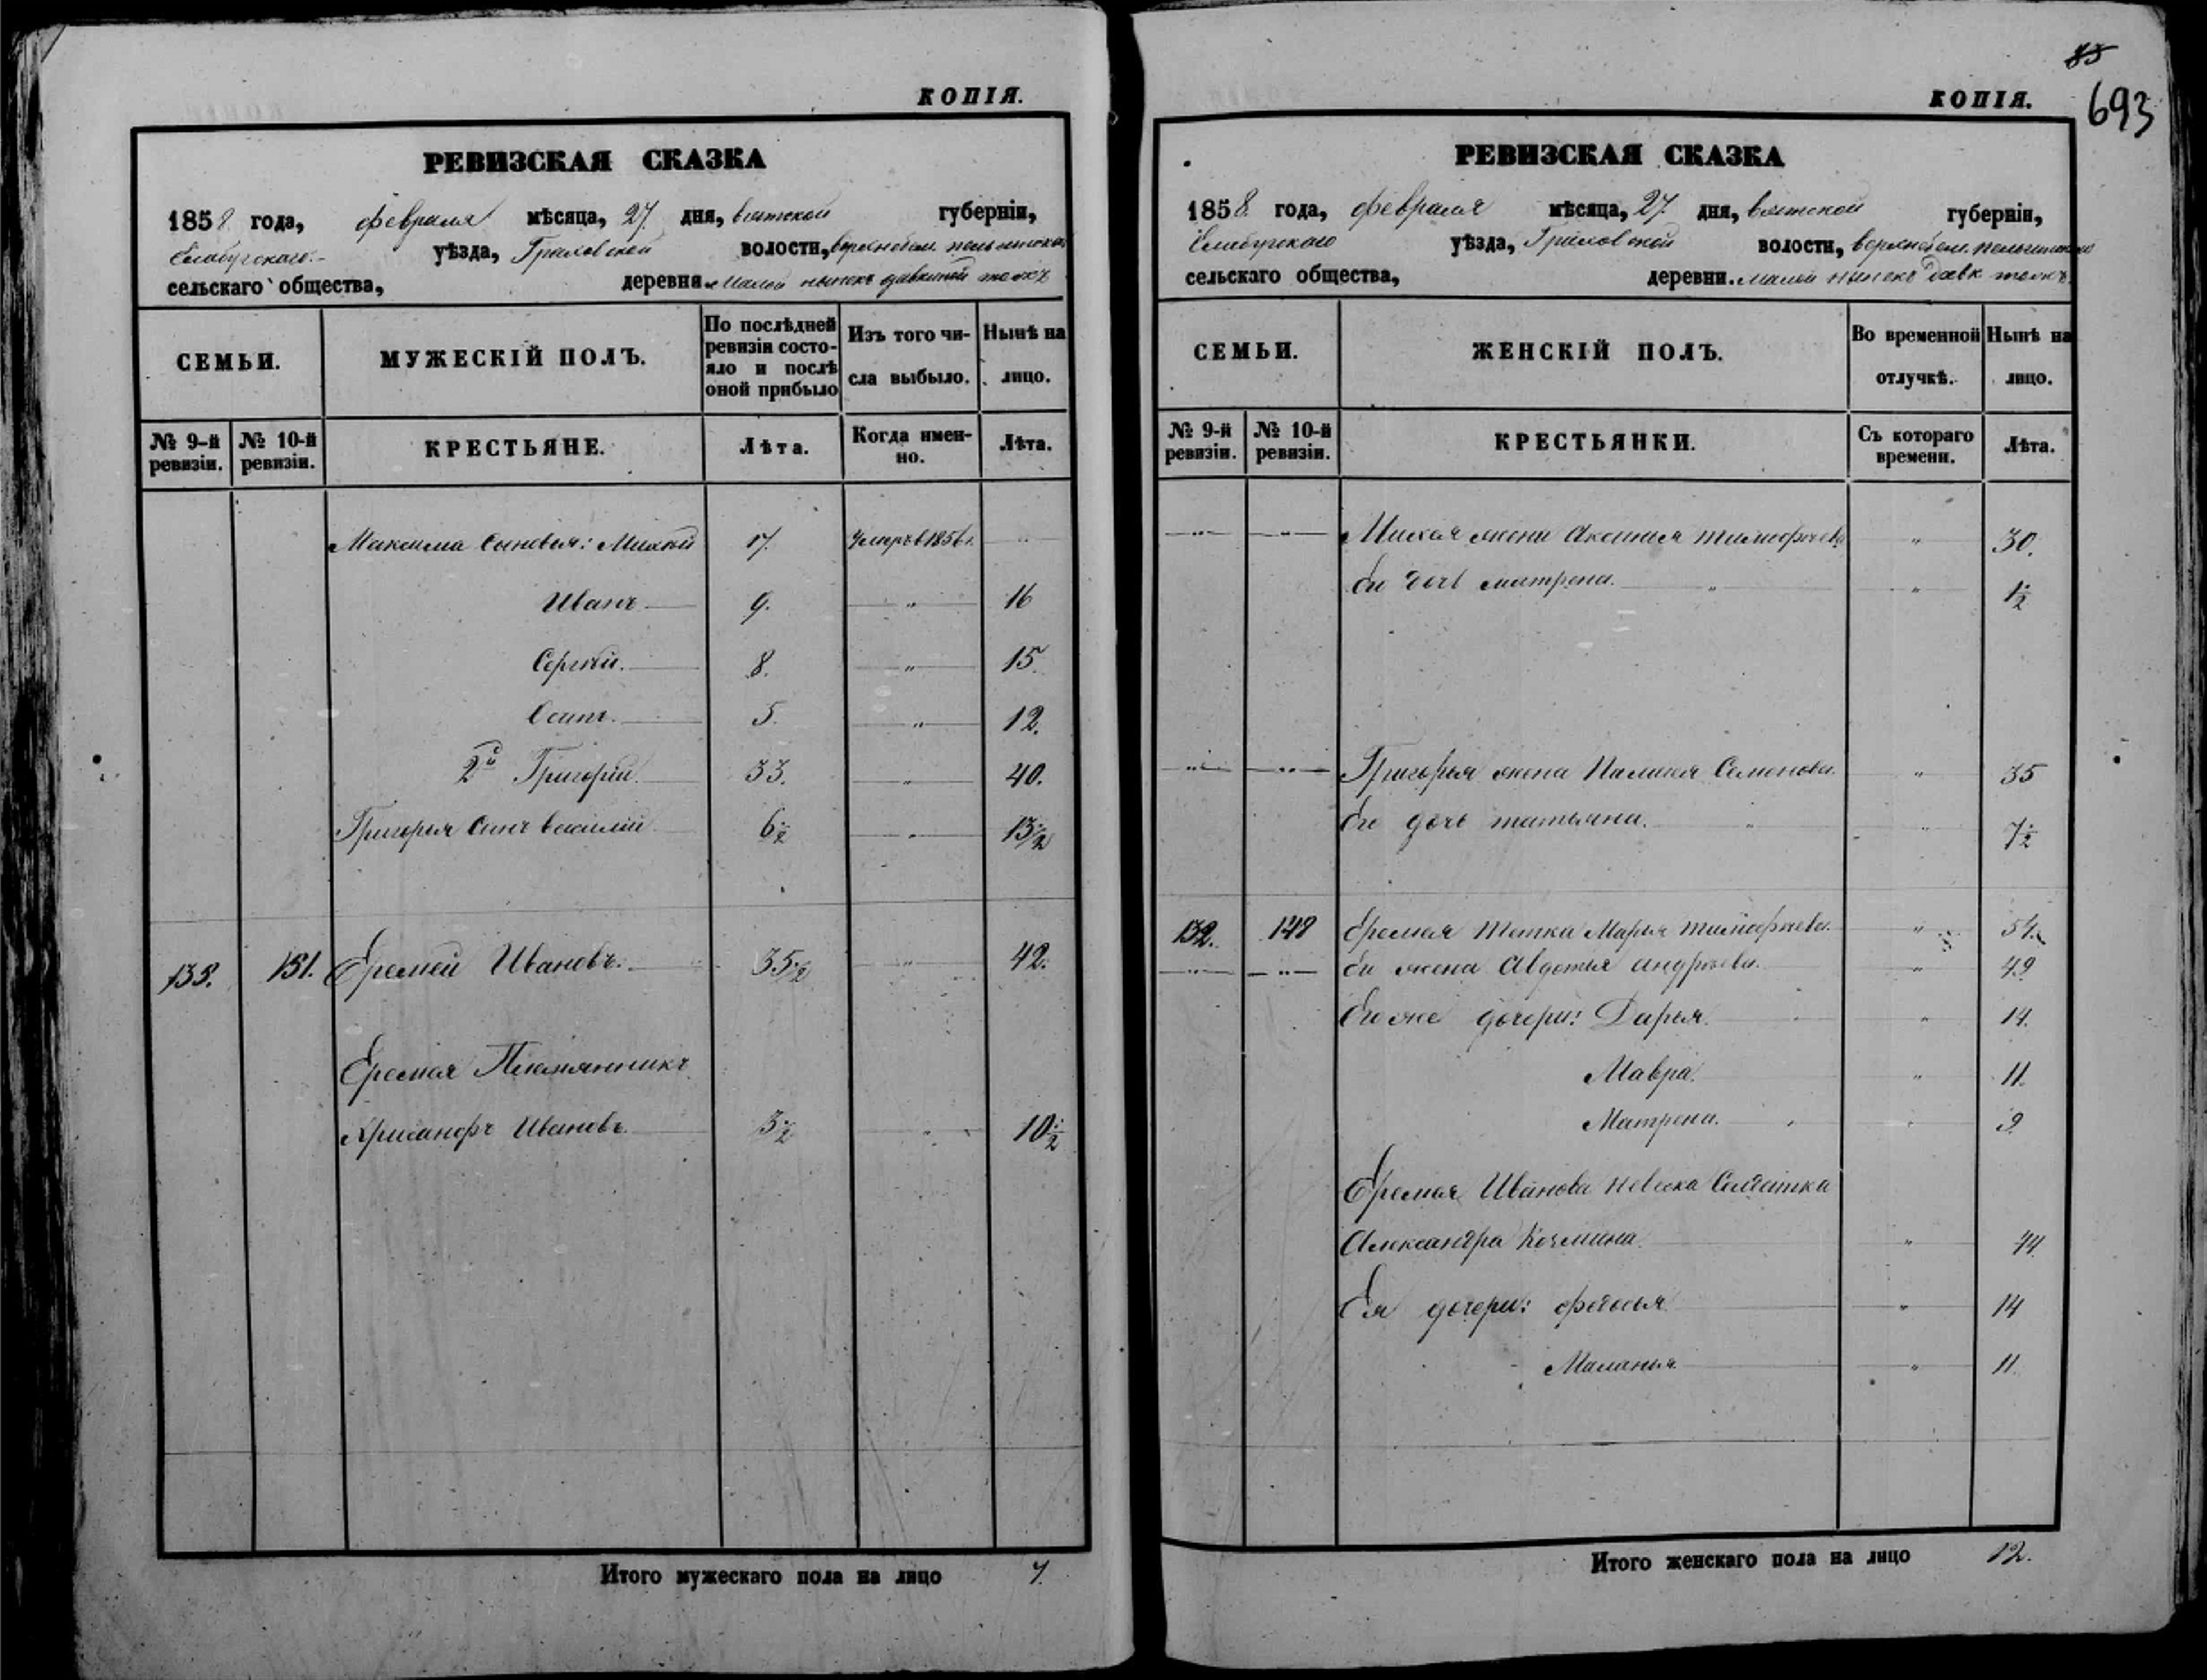 КОПІЯ.
РЕВИЗСКАЯ СКАЗКА
1858 года, февраля мѣсяца, 27. дня, вятской губерніи,
Елабугскаго уѣзда, Граховской волости,
сельскаго общества, деревни малой
СЕМЬИ. МУЖЕСКІЙ ПОЛЪ. По послѣдней ревизіи состояло и послѣ оной прибыло Изъ того числа выбыло. Нынѣ на лицо.
№ 9-й ревизіи. № 10-й ревизіи. КРЕСТЬЯНЕ. Лѣта. Когда именно. Лѣта.
Максима сыновья: Михей 17. Умеръ в 1856 г.
Иванъ 9. " 16
Сергѣй. 8. " 15.
Осипъ. 5. " 12.
2й Григорій. 33. " 40.
Григорья сынъ василій 6½ " 13½
133. 151. Еремей Ивановъ. 35½ " 42.
Еремея Племянникъ
Хрисанфъ Ивановъ. 3½ " 10½
Итого мужескаго пола на лицо 7.
85
693
КОПІЯ.
РЕВИЗСКАЯ СКАЗКА
1858. года, февраля мѣсяца, 27. дня, вятской губерніи,
Елабугскаго уѣзда, Граховской волости,
сельскаго общества, деревни. малой
СЕМЬИ. ЖЕНСКІЙ ПОЛЪ. Во временной отлучкѣ. Нынѣ на лицо.
№ 9-й ревизіи. № 10-й ревизіи. КРЕСТЬЯНКИ. Съ котораго времени. Лѣта.
" " Михея жена Аксинья тимофѣева " 30.
Ея дочь матрена. " 1½
" " Григорья жена Семенова. " 35
Его дочь татьяна. " 7½
132. 148 Еремея тетка Марья тимофѣева. " 54.
" " Ея жена Авдотья андрѣева. " 49
Егоже дочери: Дарья. " 14.
Мавра. " 11.
Матрена. " 9.
Еремея Иванова невеска Солдатка
Александра Козмина. " 44.
Ея дочери: федосья " 14
Маланья " 11.
Итого женскаго пола на лицо 12.